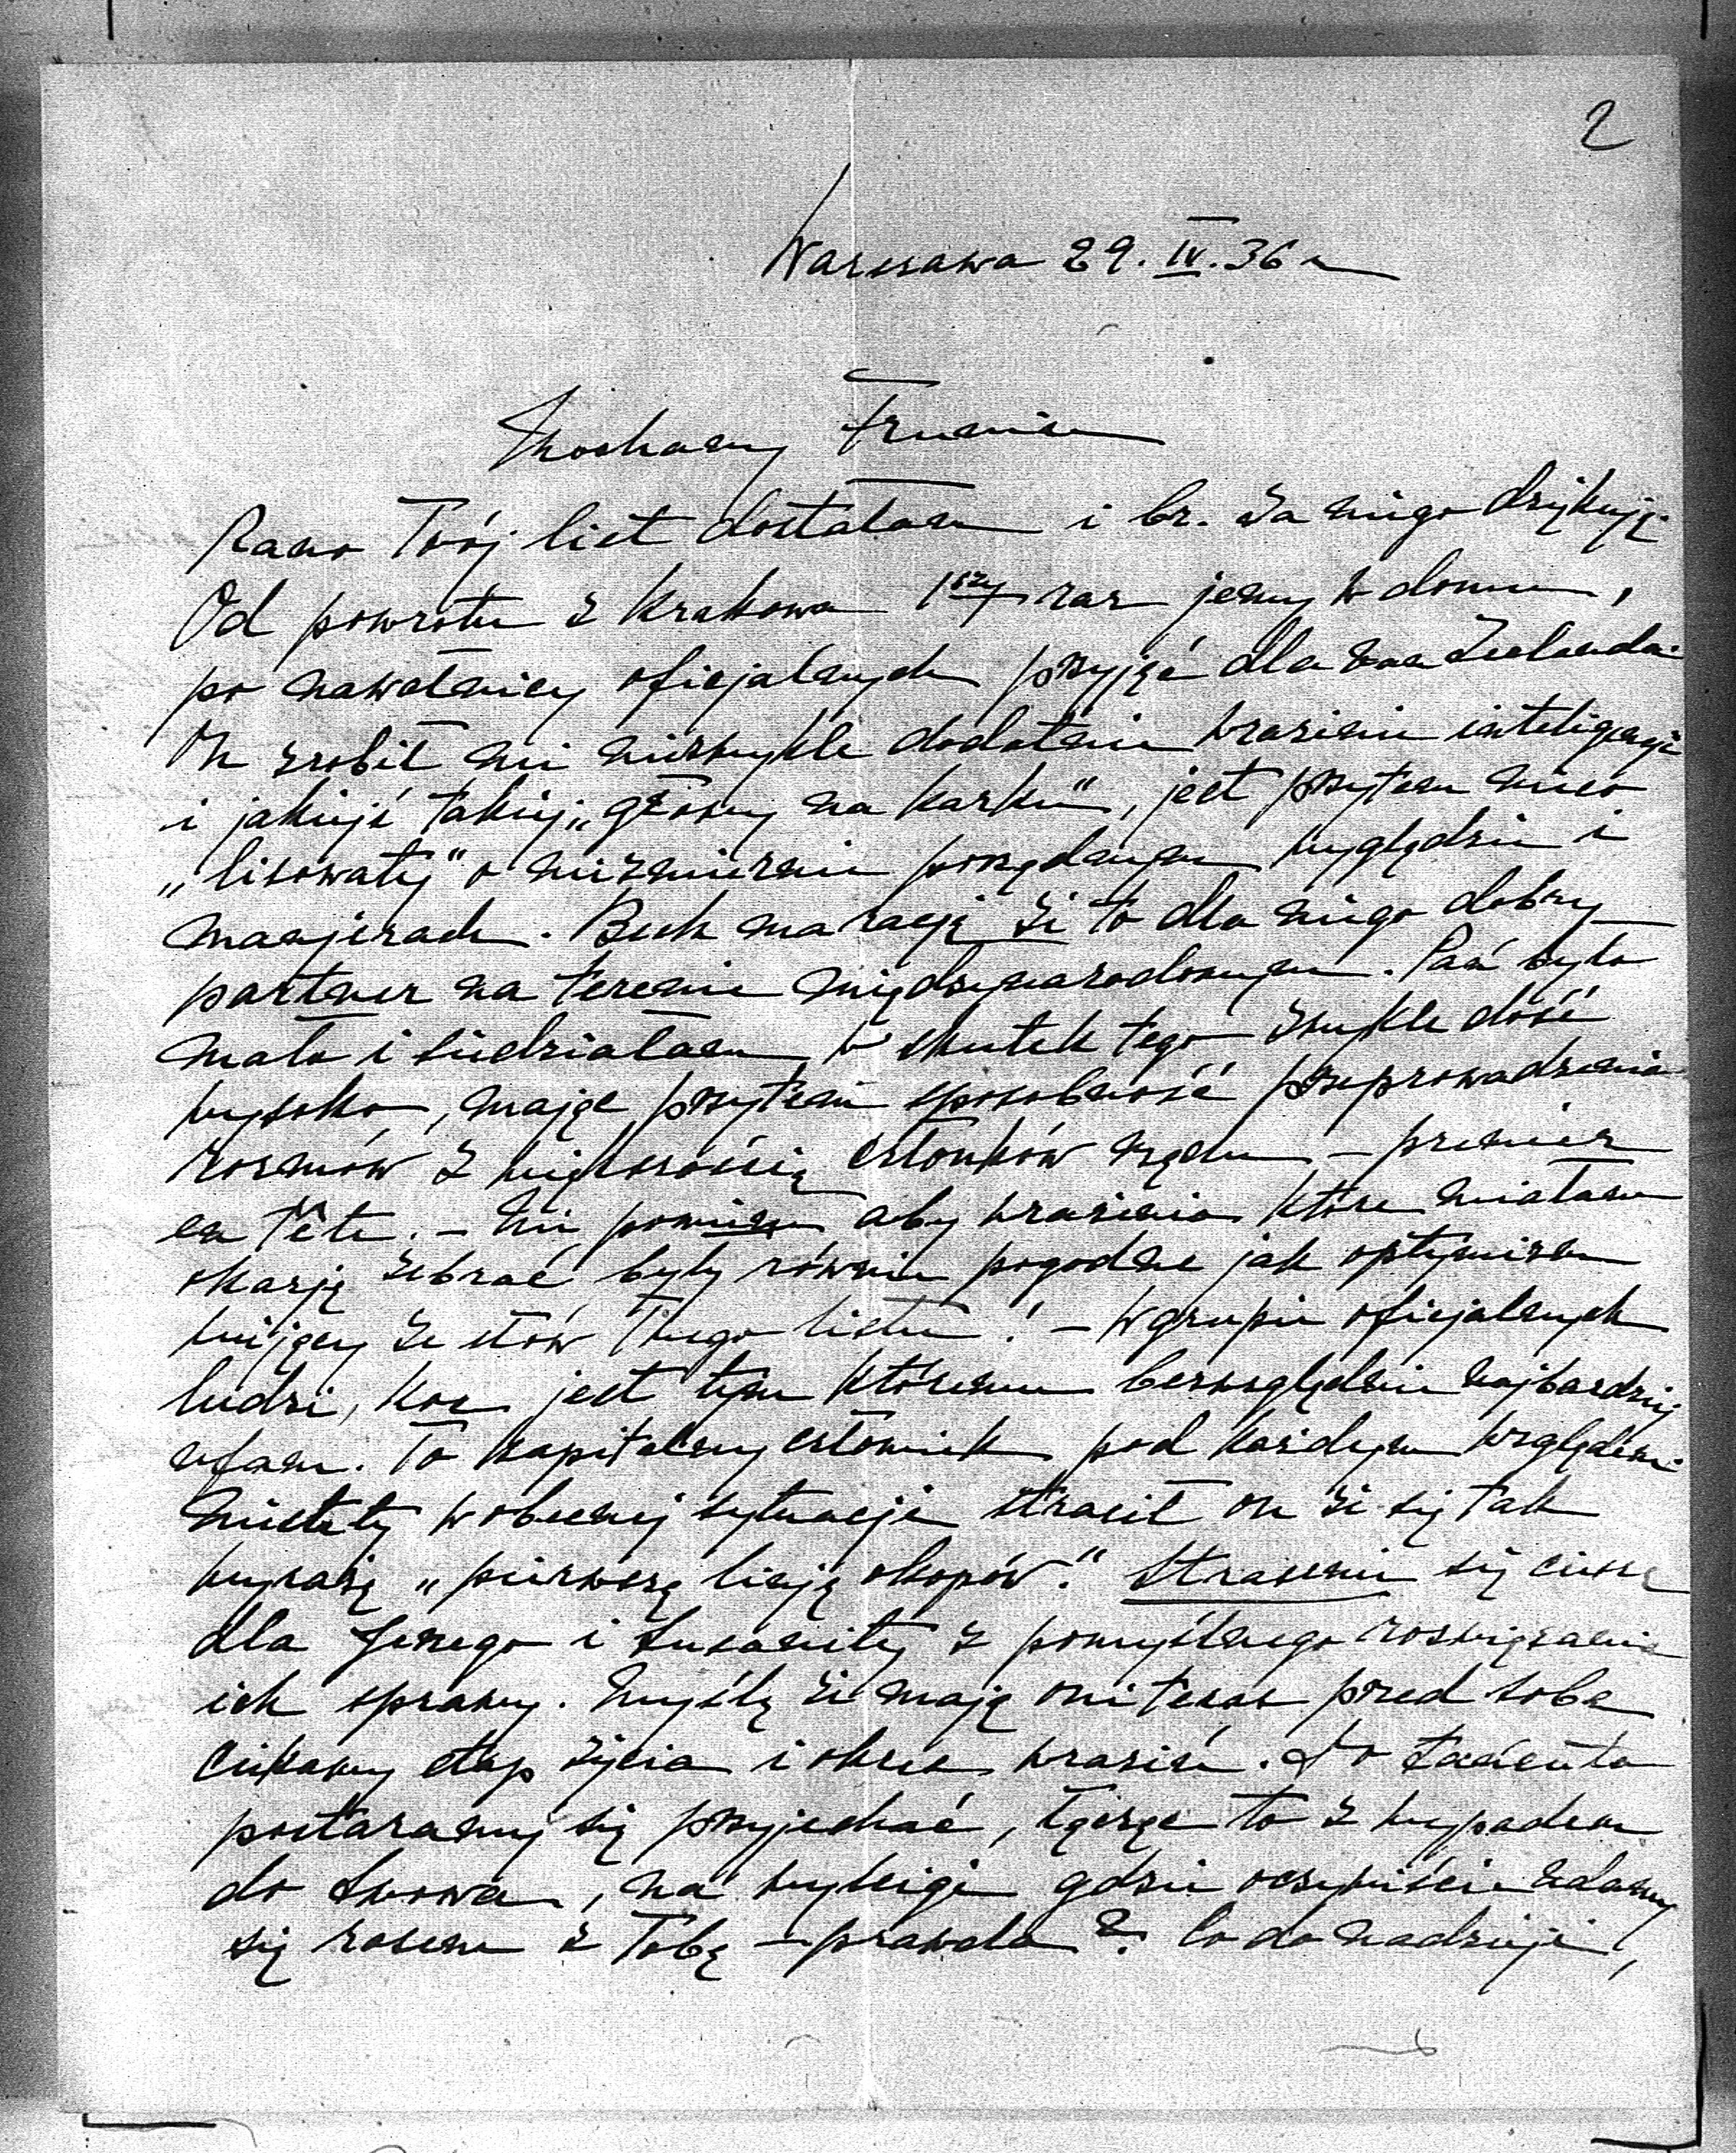 2
Warszawa 29.IV.36 r
Kochany Fruniu
Rano Twój list dostałam i br. za niego dziękuję.
Od powrotu z Krakowa 1szy raz jemy w domu,
po nawałnicy oficjalnych przyjęć dla van Zeelanda.
On zrobił mi niezwykle dodatnie wrażenie inteligencji
i jakiejś takiej „głowy na karku", jest przytem nieco
„lisowaty" o niezmiernie porządnym wyglądzie i
manjerach. Beck ma rację że to dla niego dobry
partner na terenie międzynarodowym. Pań było
mało i siedziałam w skutek tego zwykle dość
wysoko, mając przytem sposobność przeprowadzenia
rozmów z większością członków rządu – premier
en tête. – Nie powiem aby wrażenia które miałam
okazję zebrać były równie pogodne jak optymizm
wiejący ze słów Twego listu! – W grupie oficjalnych
ludzi, Koc jest tym któremu bezwzględnie najbardziej
ufam. To kapitalny człowiek pod każdym względem.
Niestety w obecnej sytuacji stracił on że się tak
wyrażę „pierwszą linję okopów." Strasznie się cieszę
dla Jerzego i Suzanity z pomyślnego rozwiązania
ich sprawy. Myślę że mają oni teraz przed sobą
ciekawy etap życia i okres wrażeń. Do Łańcuta
postaramy się przyjechać, łącząc to z wypadem
do Lwowa, na wyścigi gdzie oczywiście udamy
się razem z Tobą – prawda? Co do nadzieji,